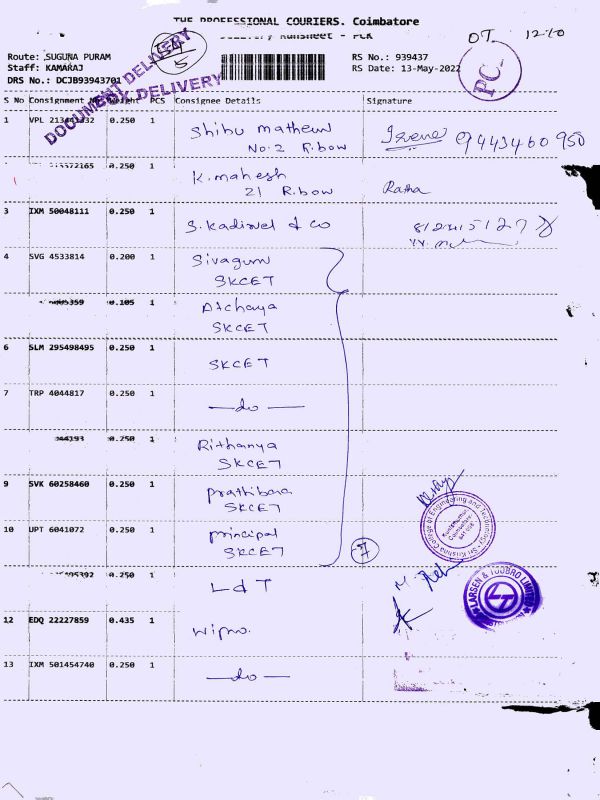 THE PROFESSIONAL COURIERS. Coimbatore
Runsheet - PCR
OT. 12-10
Route: SUGUNA PURAM
RS No.: 939437
Staff: KAMARAJ
RS Date: 13-May-2022
DRS No.: DCJB93943701
PC
DOCUMENT DELIVERY
DELIVERY
S No Consignment Weight PCS Consignee Details Signature
1 VPL 0.250 1 Shibu Mathew
No.2 R.bow
Irene 9443460950
0.250 1 K.mahesh
21 R.bow
3 IXM 50048111 0.250 1 S.Kadirvel & Co
4 SVG 4533814 0.200 1 Sivaguru
SKCET
0.105 1 Atchaya
SKCET
6 SLM 295498495 0.250 1 SKCET
7 TRP 4044817 0.250 1 —do—
0.250 1 Rithanya
SKCET
9 SVK 60258460 0.250 1 Prathibara
SKCET
10 UPT 6041072 0.250 1 principal
SKCET
7
Sri Krishna College of Engineering and Technology
Kuniamuthur
Coimbatore
641 008
0.250 1 L & T
LARSEN & TOUBRO LIMITED
LT
12 EDQ 22227859 0.435 1 Wipro.
13 IXM 501454740 0.250 1 —do—